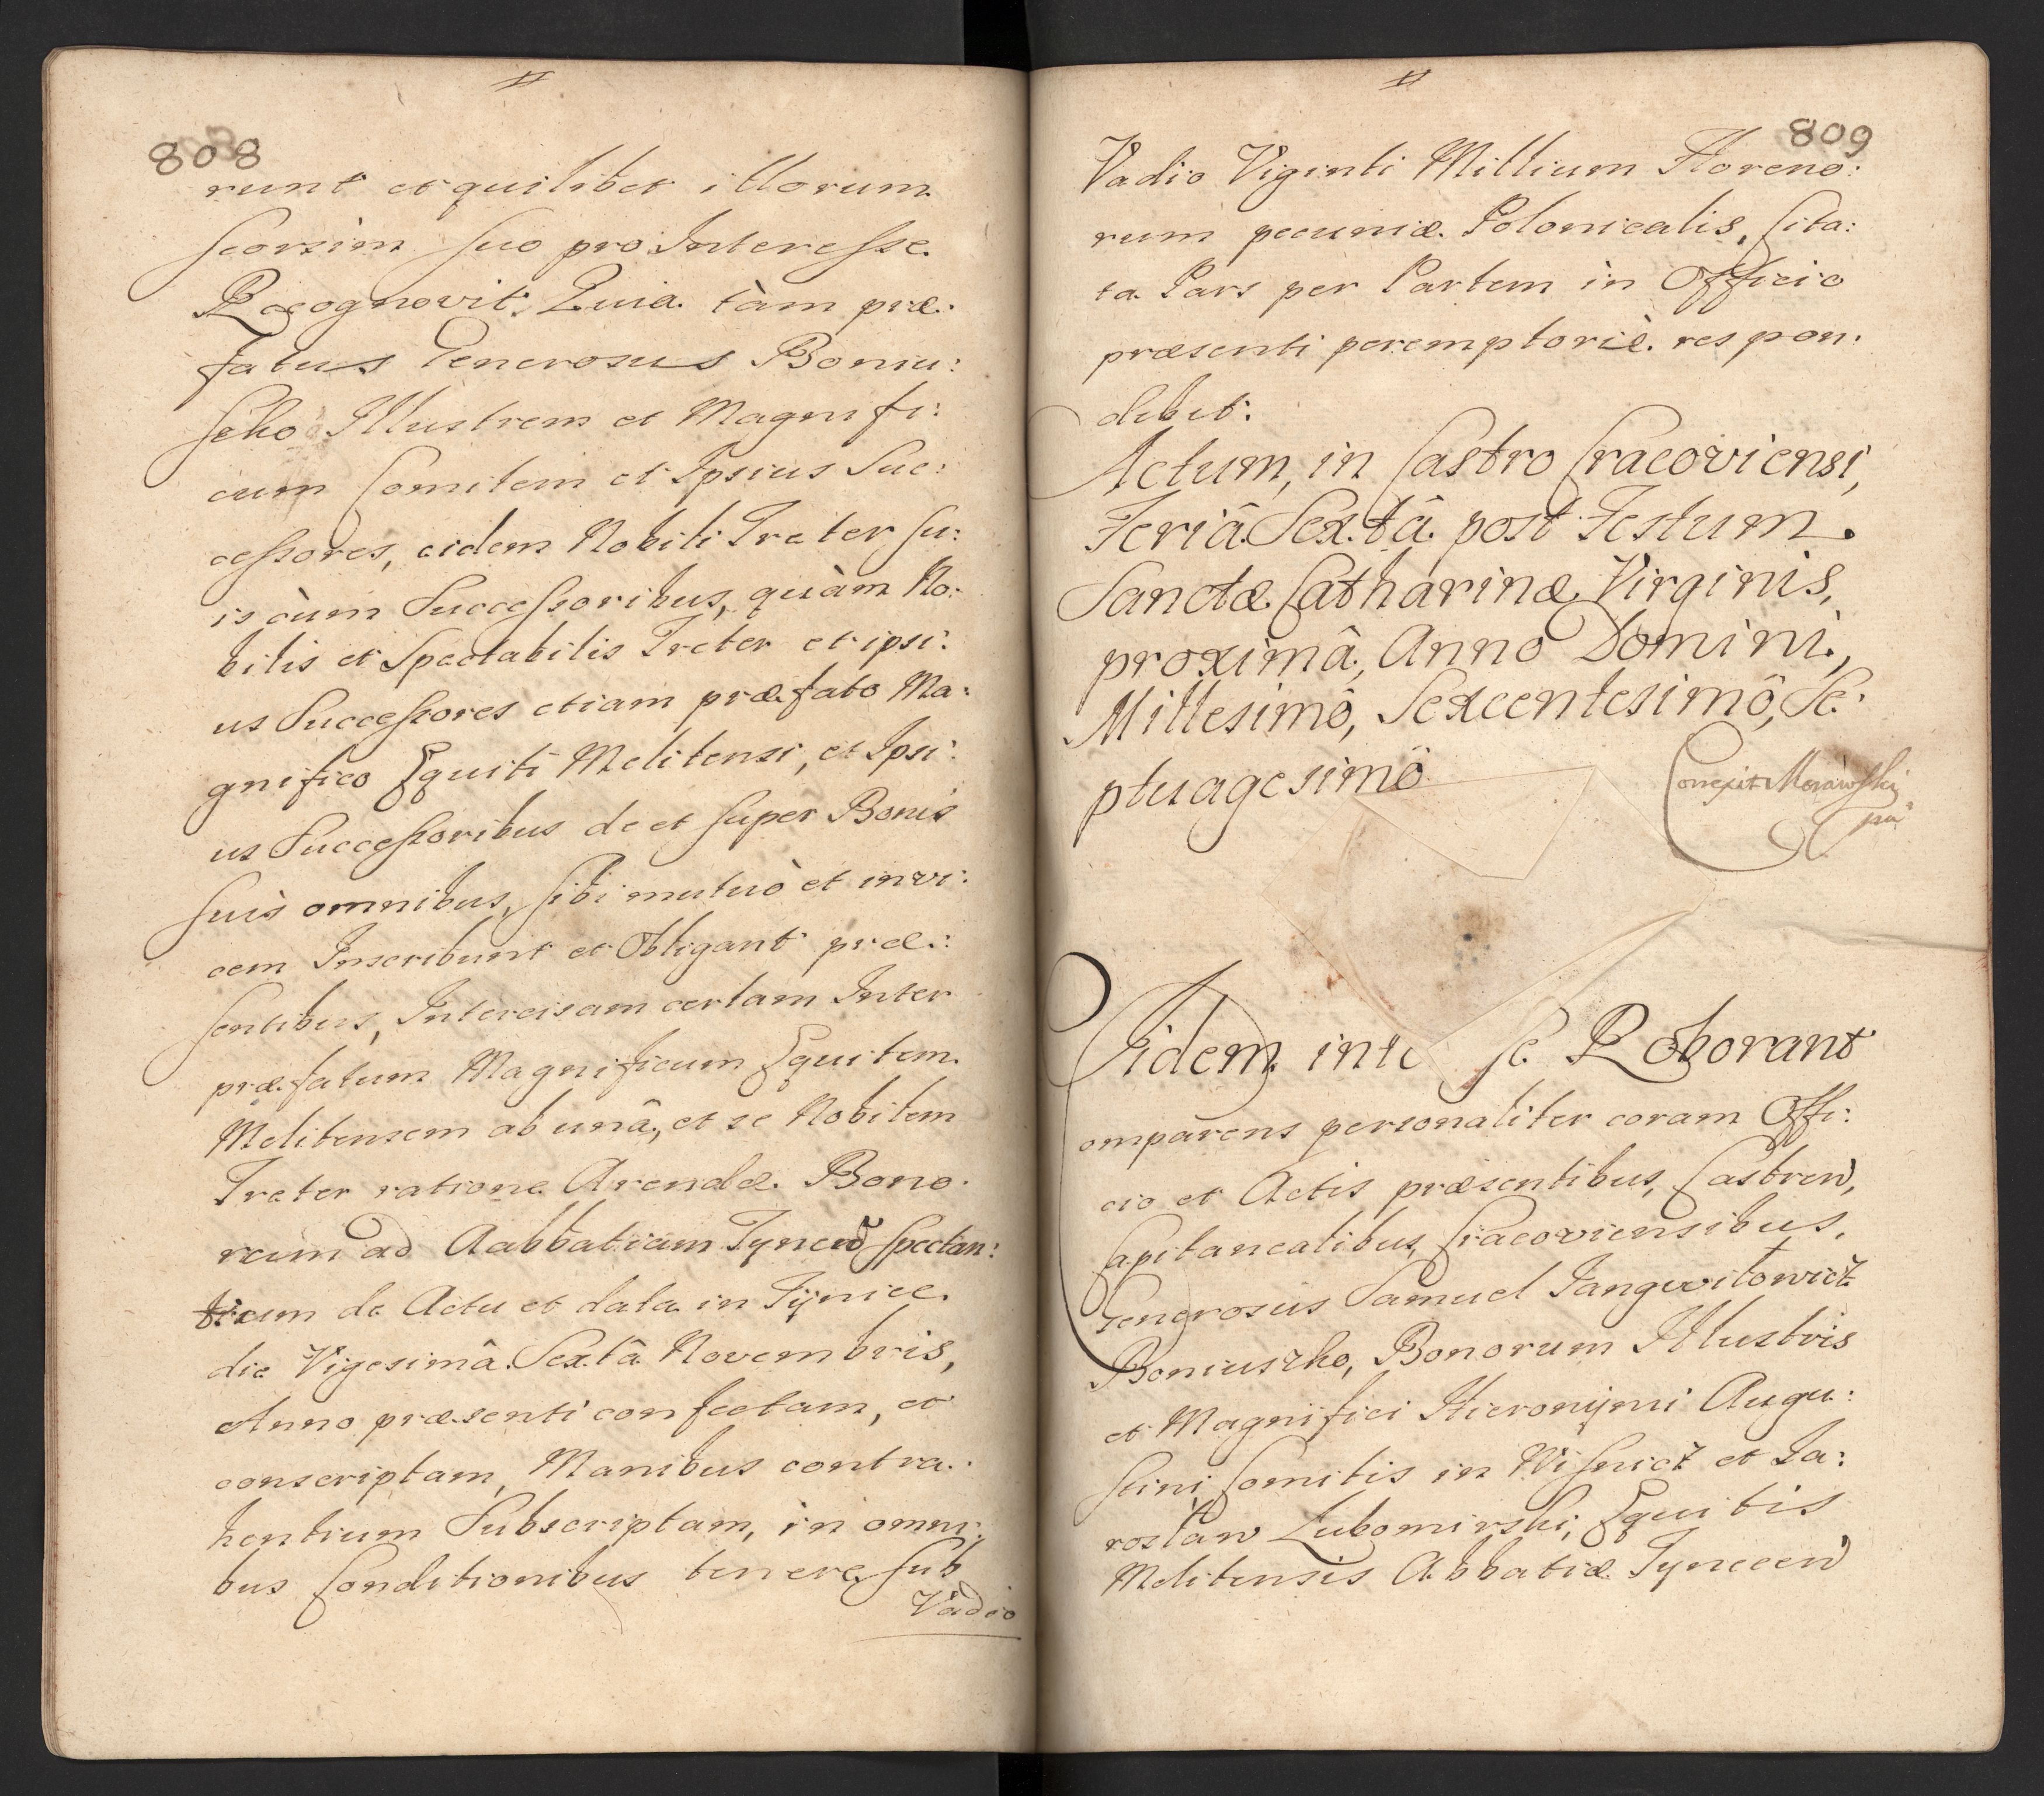 808
runt et quilibet illorum
seorsim suo pro Interesse
Recognovit. Quia tàm præ:
fatus Generosus Boniu:
szko Illustrem et Magnifi:
cum Comitem et Ipsius Suc:
cessores, eidem Nobili Treter su:
is cùm Successoribus, quàm No:
bilis et Spectabilis Treter et ipsi:
us Successores etiam præfato Ma:
gnifico Equiti Melitensi, et Ipsi:
us Successoribus de et super Bonis
suis omnibus, sibi mutuò et invi:
cem Inscribunt et Obligant præ:
sentibus, Intercisam certam Inter
præfatum Magnificum Equitem
Melitensem ab unâ, et se Nobilem
Treter ratione Arendæ Bono:
rum ad Aabbatiam Tynecen spectan:
tium de Actu et data in Tÿniec
die Vigesimâ Sextâ Novembris,
Anno præsenti confectam, et
conscriptam, Manibus contra:
hentium Subscriptam, in omni:
bus Conditionibus tenere sub
Vadio
809
Vadio Viginti Millium Floreno:
rum pecuniæ Polonicalis, Cita:
ta Pars per Partem in Officio
præsenti peremptoriè respon:
debit:
Actum, in Castro Cracoviensi,
Feriâ Sextâ post Festum
Sanctæ Catharinæ Virginis,
proximâ, Anno Domini,
Millesimô, Sexcentesimô, Se:
ptuagesimô
Correxit Morawski
Iidem inte se Roborant
omparens personaliter coram Offi:
cio et Actis præsentibus, Castren,
Capitanealibus, Cracoviensibus,
Generosus Samuel Jangwitowicz
Boniuszko, Bonorum Illustris
et Magnifici Hieronÿmi Augu:
stini Comitis in Wisnicz et Ja:
roslaw Lubomirski, Equitis
Melitensis Abbatiæ Tynecen